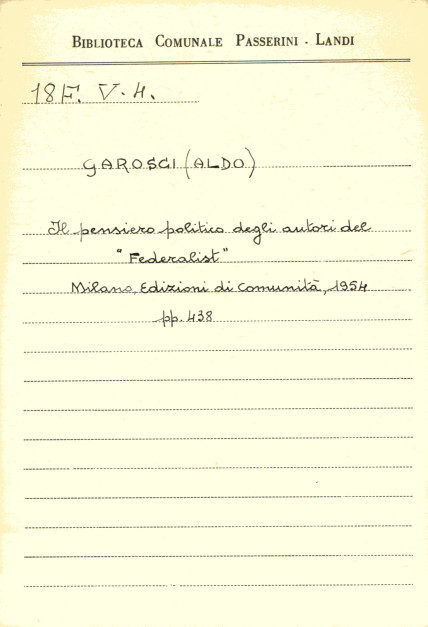 BIBLIOTECA COMUNALE PASSERINI - LANDI
18F. V. 4.
GAROSCI (ALDO)
Il pensiero politico degli autori del
"Federalist"
Milano, Edizioni di Comunità, 1954
pp. 438